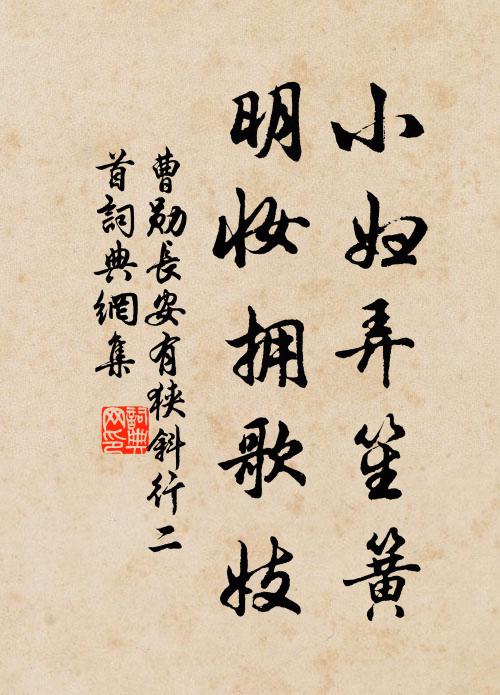 小妇弄笙簧
明妆拥歌妓
曹勛長安有狹斜行二
首詞典網集
詞典网印